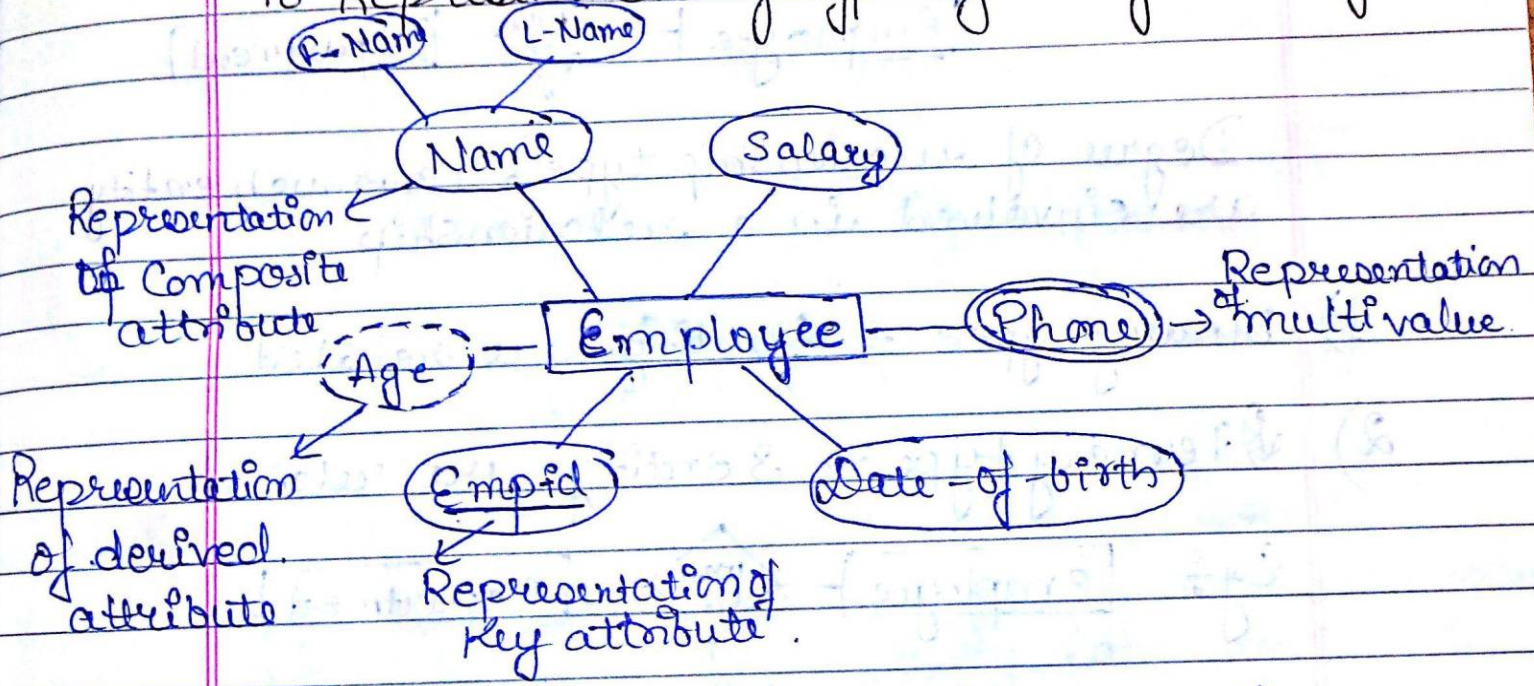 F-Name
L-Name
Name
Salary
Representation
of Composite
attribute
Representation
of multivalue
Employee
Phone
Age
Representation
of derived
attribute
Empid
Date-of-birth
Representation of
Key attribute